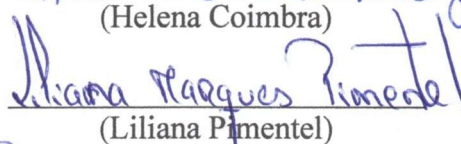 (Helena Coimbra)
Liliana Marques Pimentel
(Liliana Pimentel)